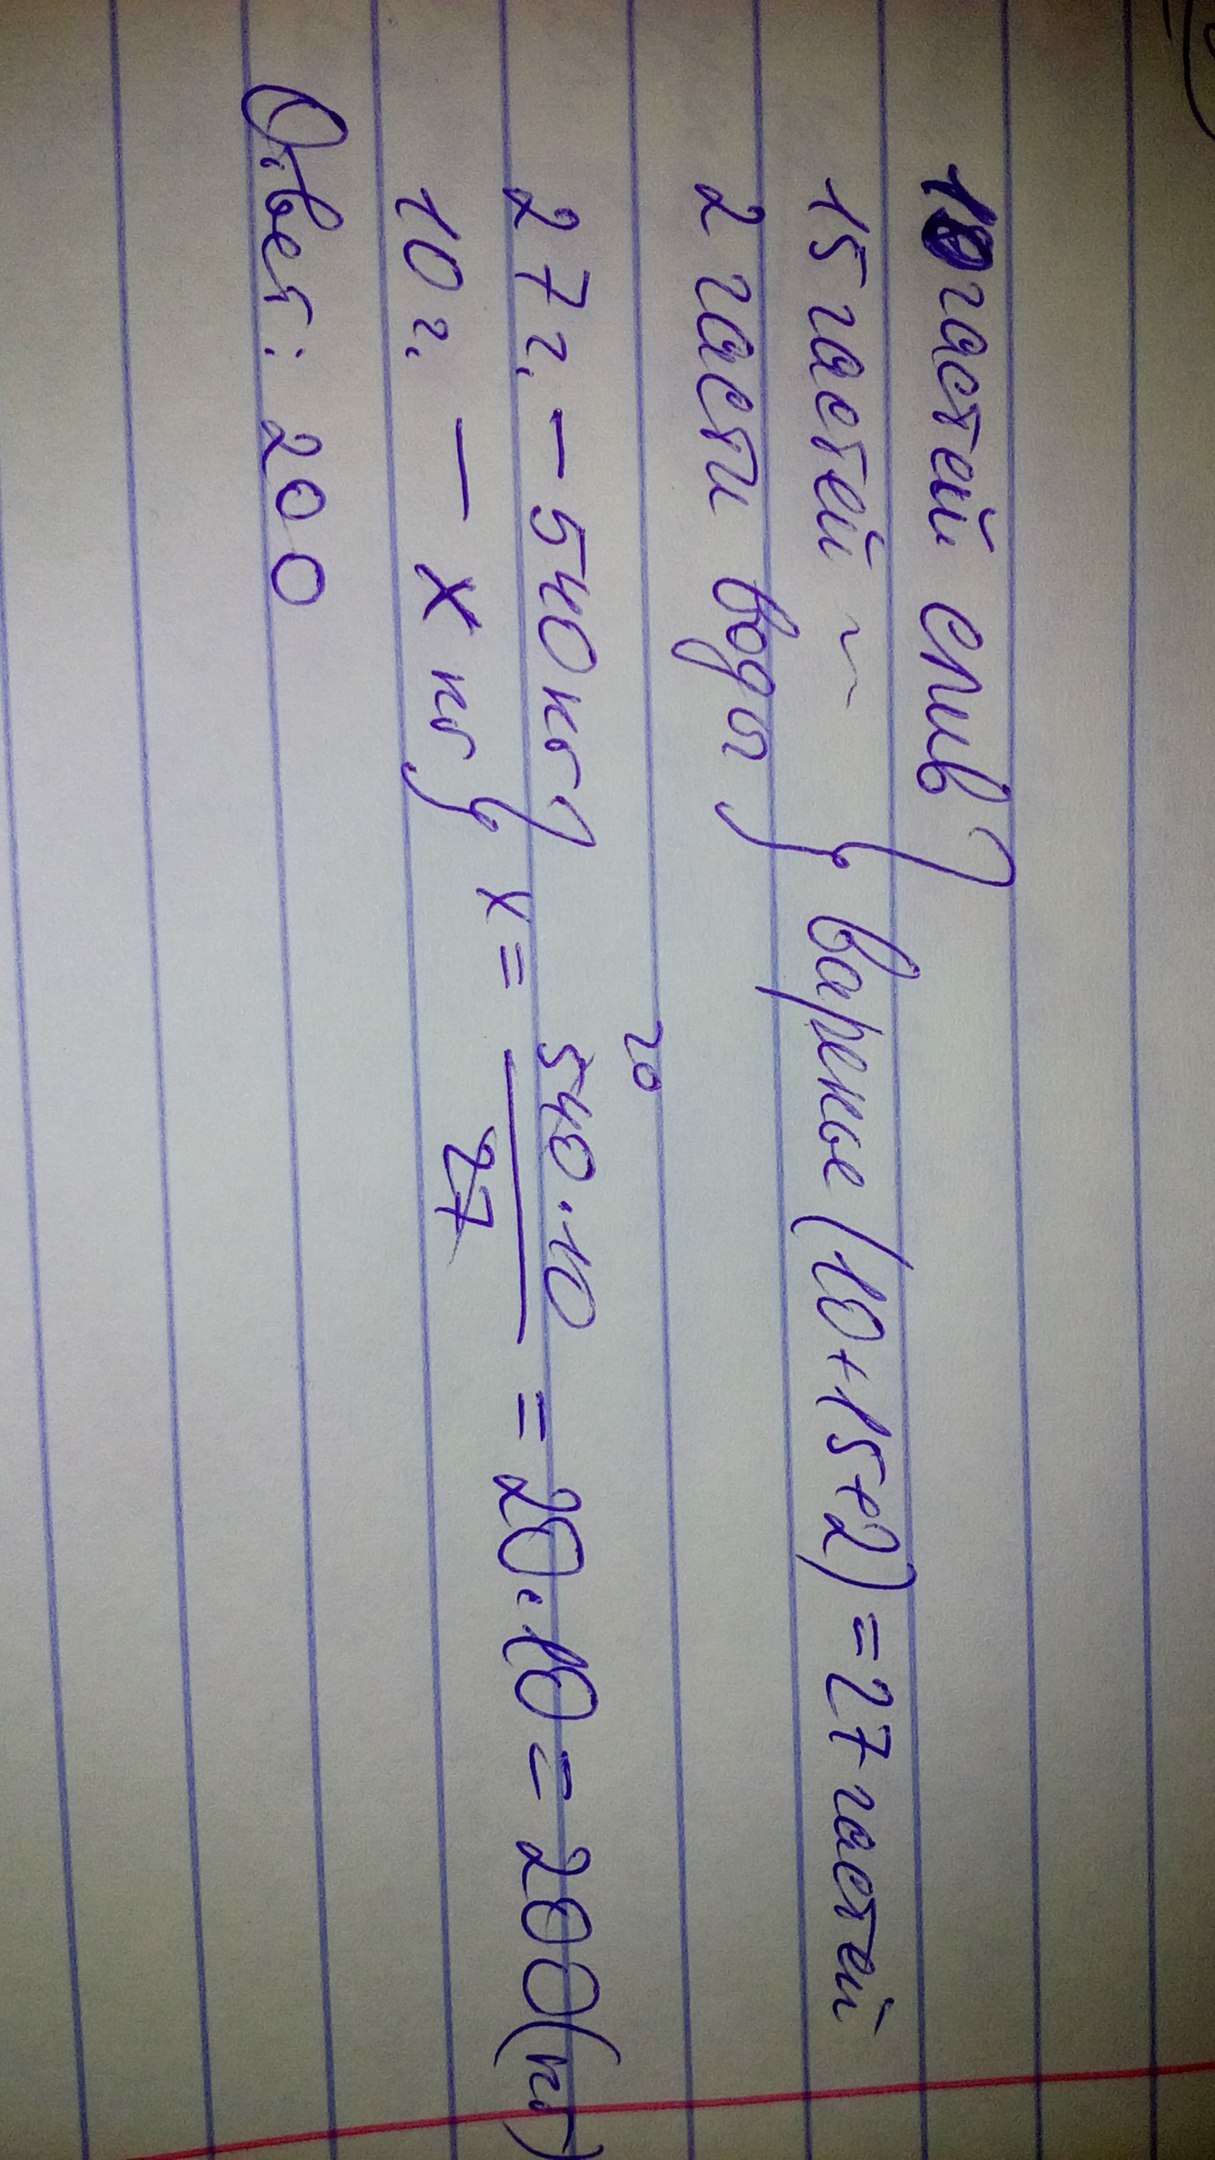 10 частей слив
15 частей ~ } варенье (10+15+2) = 27 частей
2 части воды
20
27ч. – 540кг } x = 540·10/27 = 20·10 = 200(кг)
10ч. – x кг
Ответ: 200